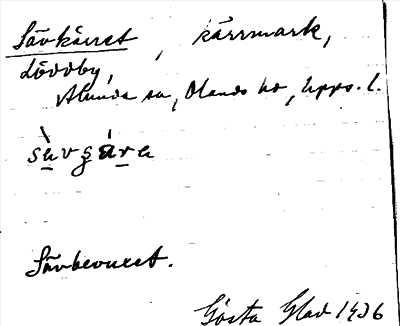 Sävkärret, kärrmark,
Lövdby,
Alunda sn, Olands hd, Upps. l.
Sävbevuxet.
Gösta Glad 1936